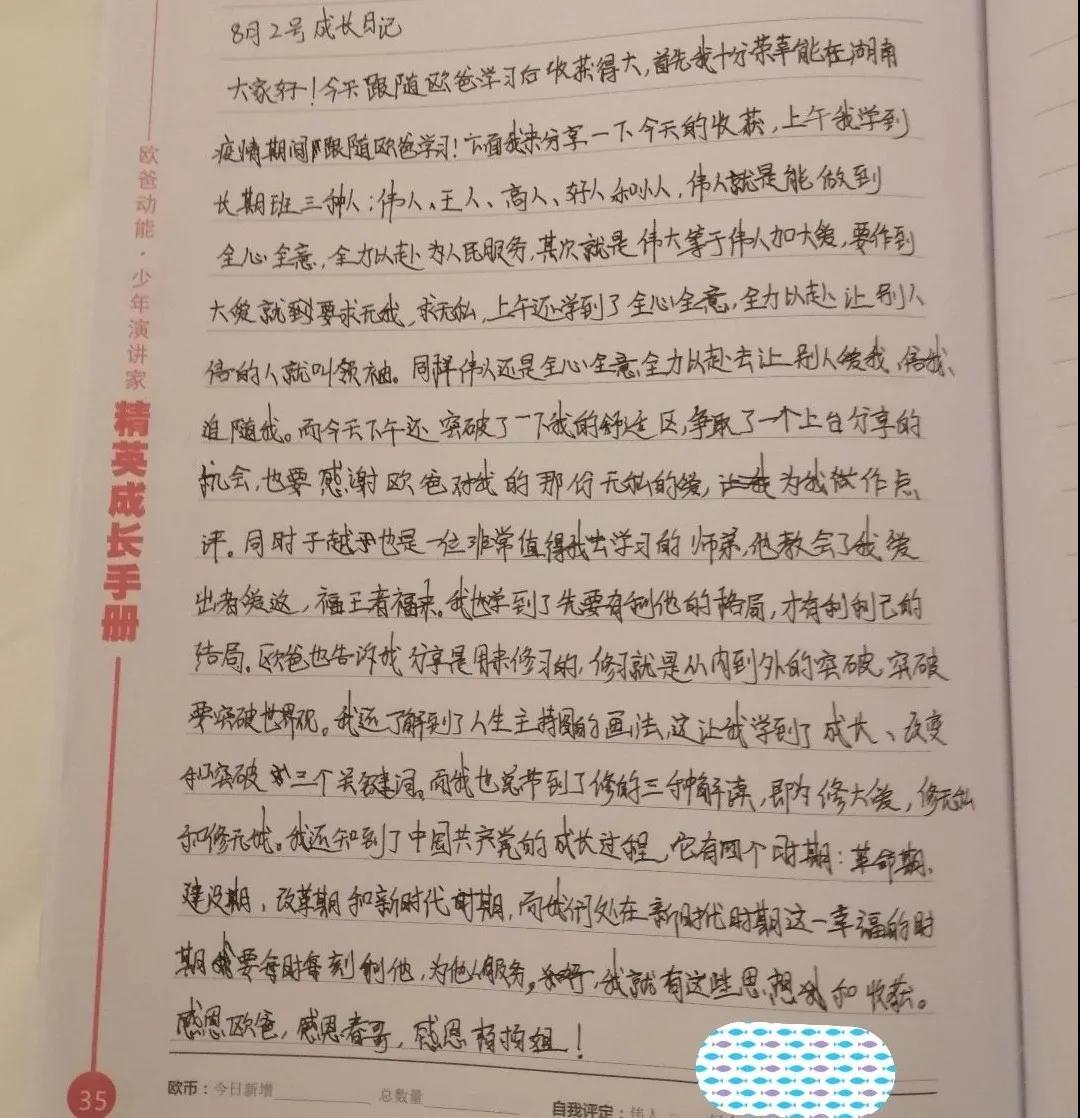 8月2号成长日记
大家好！今天跟随欧爸学习后收获得大，首先我十分荣幸能在湖南
疫情期间跟随欧爸学习！下面我来分享一下今天的收获，上午我学到
长期班三种人：伟人、王人、高人、好人和小人，伟人就是能做到
全心全意，全力以赴为人民服务，其次就是伟大等于伟人加大爱，要作到
大爱就到要求无我，求无私，上午还学到了全心全意，全力以赴让别人
信的人就叫领袖。同样伟人还是全心全意全力以赴去让别人爱我，信我、
追随我。而今天下午还突破了一下我的舒适区，争取了一个上台分享的
机会，也要感谢欧爸对我的那份无私的爱，为我做作点
评。同时于越也是一位非常值得我去学习的师弟，他教会了我爱
出者爱返，福王者福来。我也学到了先要有利他的格局，才有利利己的
结局。欧爸也告诉我分享是用来修习的，修习就是从内到外的突破，突破
要突破世界观。我还了解到了人生主持图的画法，这让我学到了成长、改变
和突破三个关键词。而我也带到了修的三种解读，即为修大爱，修无私
和修无我。我还知到了中国共产党的成长过程，它有四个时期：革命期、
建设期，改革期和新时代时期，而我们处在新时代时期这一幸福的时
期要每时每刻利他，为他人服务。我就有这些思想和收获。
感恩欧爸，感恩春哥，感恩杨杨姐！
欧币：今日新增 总数量
自我评定：伟人
欧爸动能·少年演讲家
精英成长手册
35